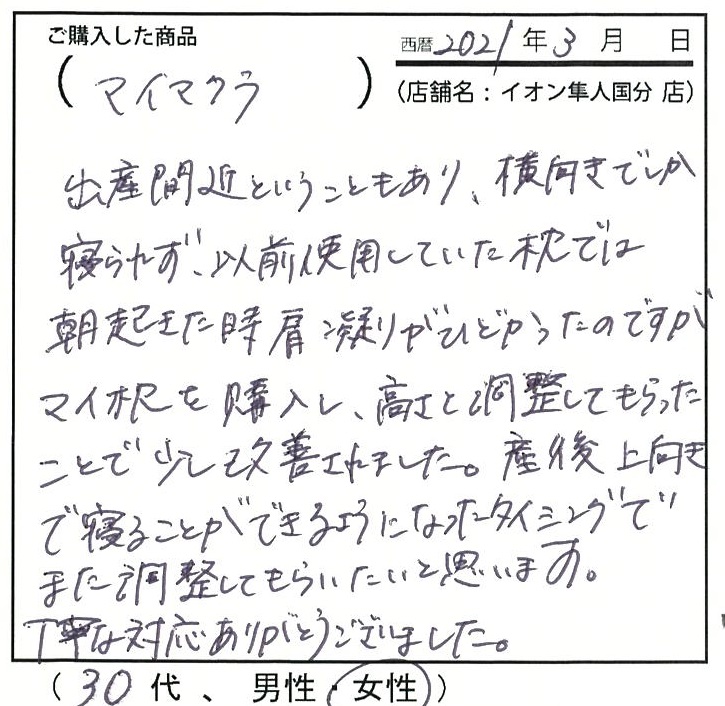 ご購入した商品
西暦2021年3月 日
(マイマクラ)
(店舗名：イオン隼人国分 店)
出産間近ということもあり、横向きでしか
寝られず、以前使用していた枕では
朝起きた時肩凝りがひどかったのですが
マイ枕を購入し、高さと調整してもらった
ことで少し改善されました。産後上向き
で寝ることができるようになったタイミングで
また調整してもらいたいと思います。
丁寧な対応ありがとうございました。
(30代、男性・女性)